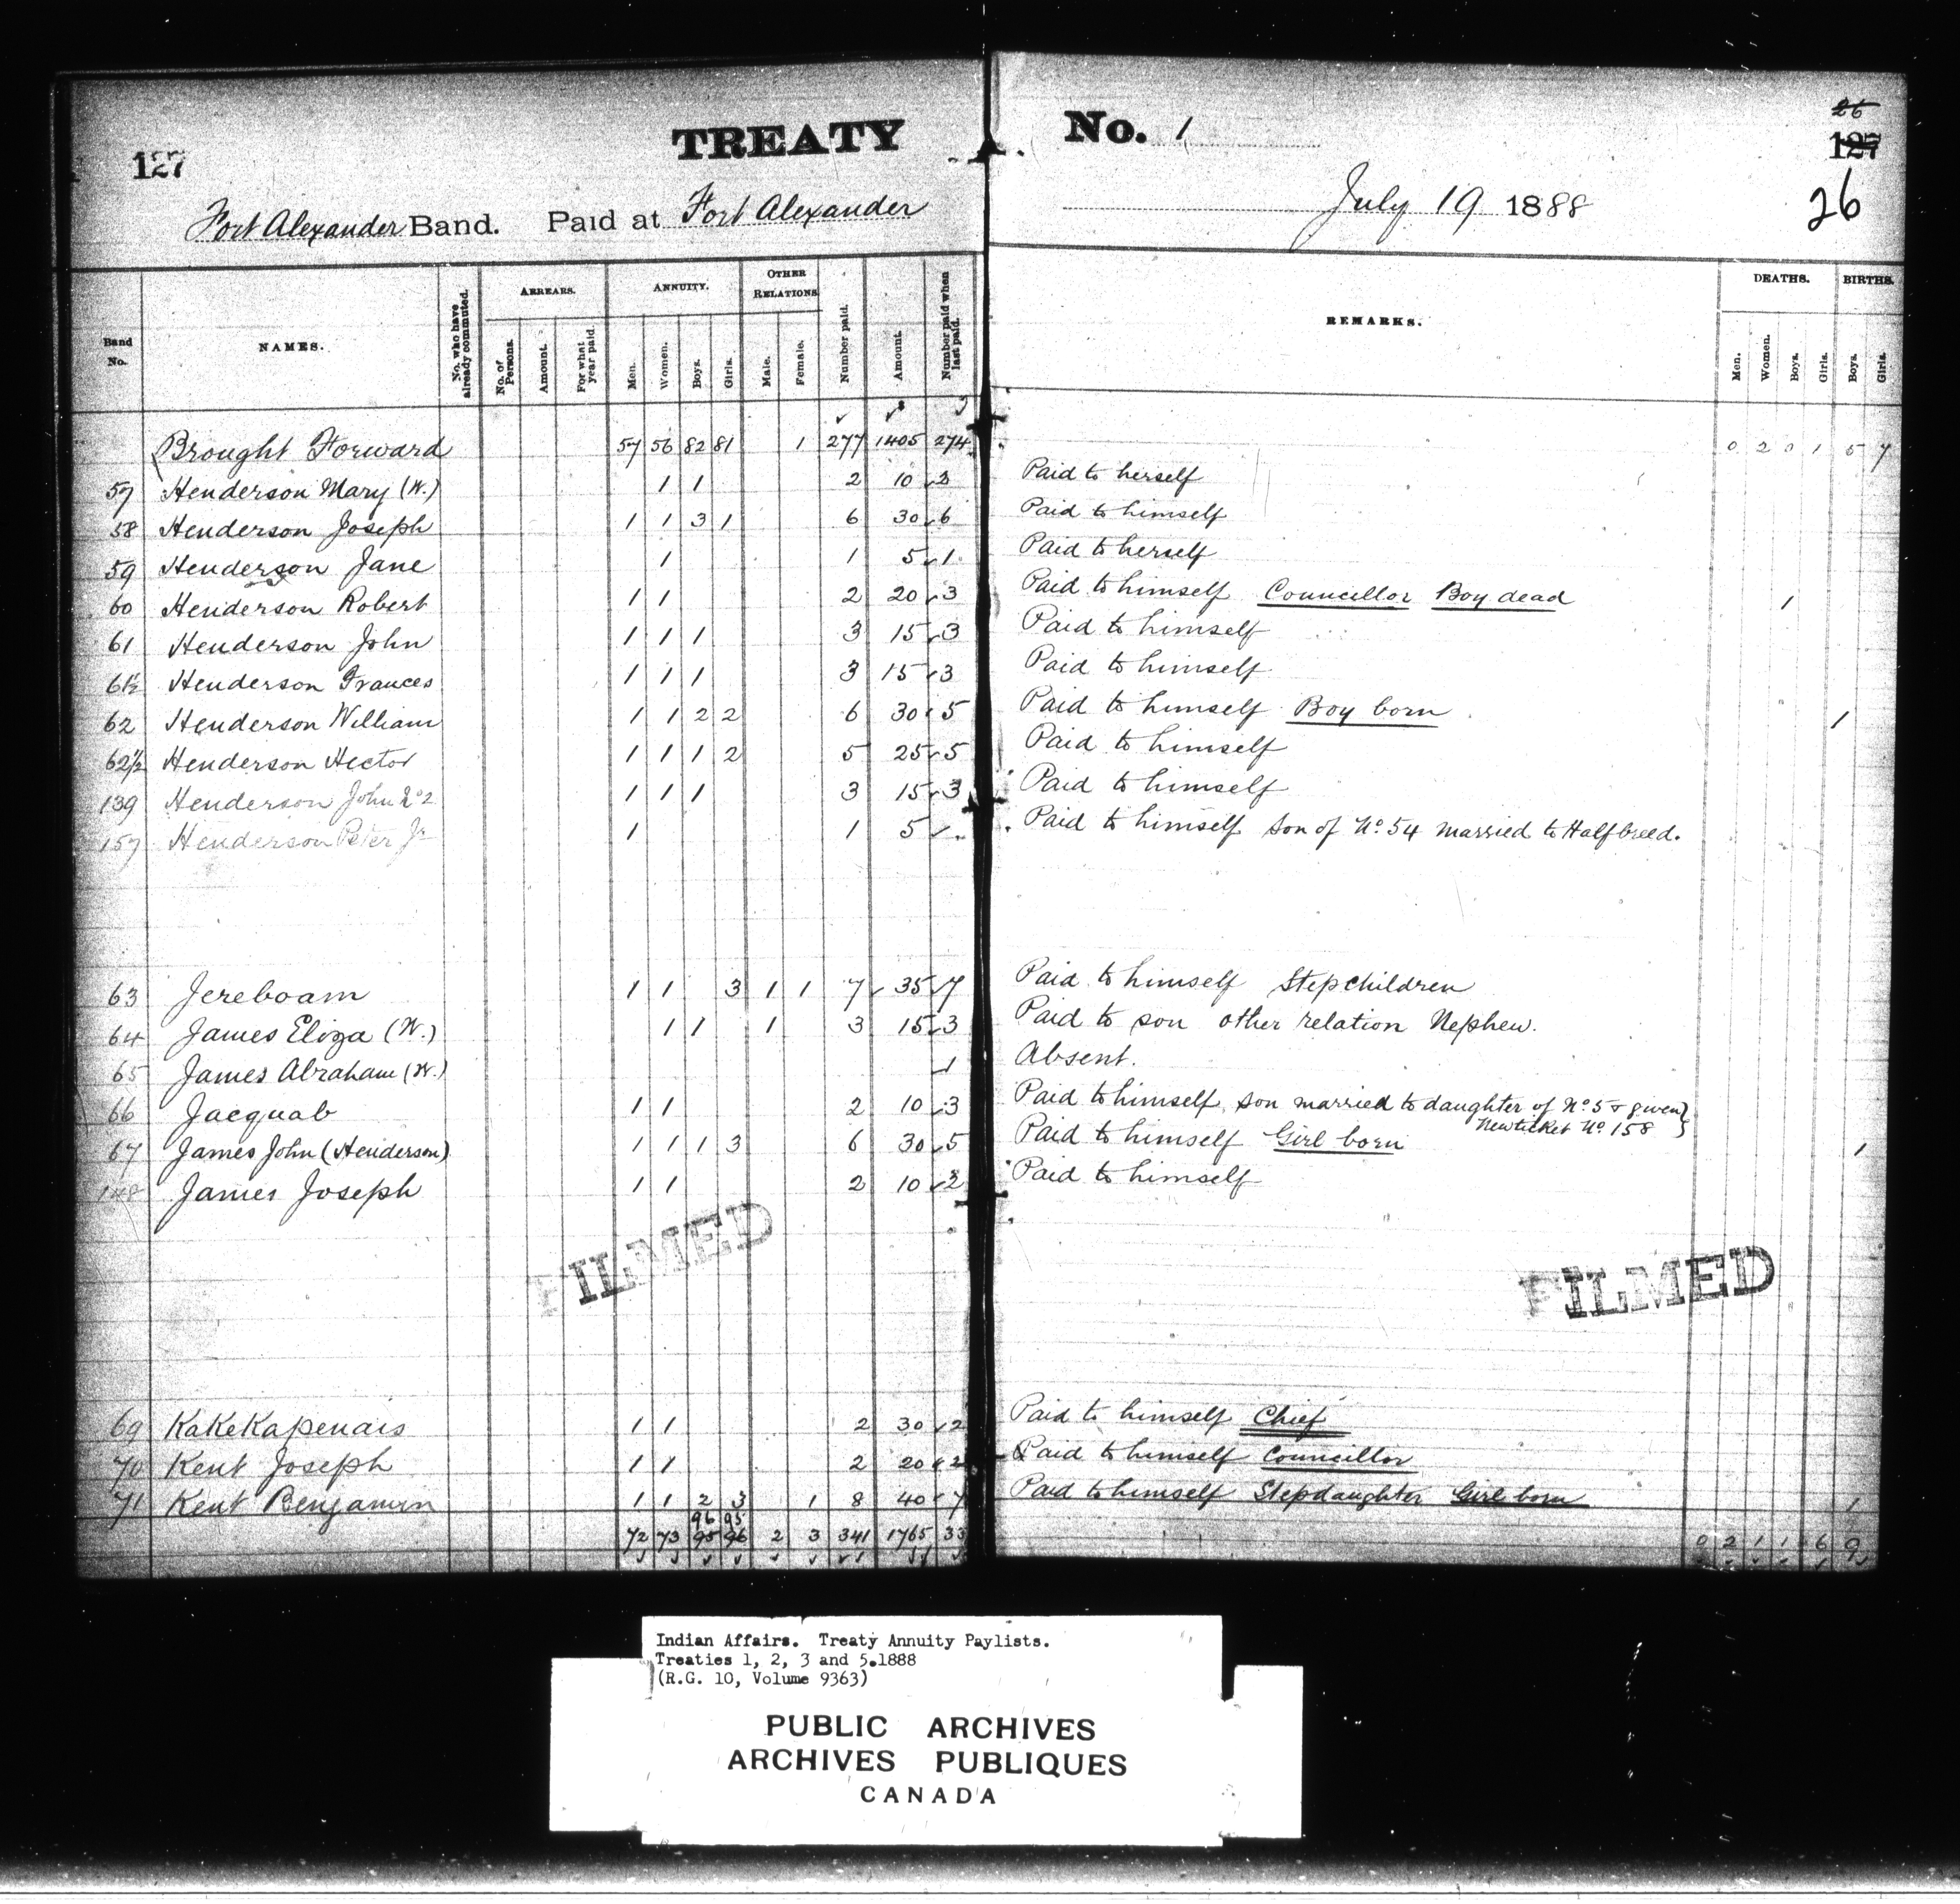 TREATY No. 1
127
26
127
26
Fort Alexander Band. Paid at Fort Alexander July 19 1888
Band No. NAMES. No. who have already commuted. ARREARS. No. of Persons. Amount. For what year paid. ANNUITY. Men. Women. Boys. Girls. OTHER RELATIONS Male. Female. Number paid. Amount. Number paid when last paid. REMARKS. DEATHS. Men. Women. Boys. Girls. BIRTHS. Boys. Girls.
Brought Forward 57 56 82 81 1 277 1405 274 0 2 0 1 5 7
57 Henderson Mary (W.) 1 1 2 10 2 Paid to herself
58 Henderson Joseph 1 1 3 1 6 30 6 Paid to himself
59 Henderson Jane 1 1 5 1 Paid to herself
60 Henderson Robert 1 1 2 20 3 Paid to himself Councillor Boy dead 1
61 Henderson John 1 1 1 3 15 3 Paid to himself
61½ Henderson Frances 1 1 1 3 15 3 Paid to himself
62 Henderson William 1 1 2 2 6 30 5 Paid to himself Boy born 1
62½ Henderson Hector 1 1 1 2 5 25 5 Paid to himself
139 Henderson John No 2 1 1 1 3 15 3 Paid to himself
157 Henderson Peter Jr 1 1 5 Paid to himself son of No. 54 married to Halfbreed.
63 Jereboam 1 1 3 1 1 7 35 7 Paid to himself Stepchildren
64 James Eliza (W.) 1 1 1 3 15 3 Paid to son other relation Nephew.
65 James Abraham (W.) 1 Absent.
66 Jacquab 1 1 2 10 3 Paid to himself, son married to daughter of No. 5 & given
New ticket No. 158
67 James John (Henderson) 1 1 1 3 6 30 5 Paid to himself Girl born 1
148 James Joseph 1 1 2 10 2 Paid to himself
FILMED FILMED
69 KaKeKapenais 1 1 2 30 2 Paid to himself Chief
70 Kent Joseph 1 1 2 20 2 Paid to himself Councillor
71 Kent Benjamin 1 1 2 3 1 8 40 7 Paid to himself Stepdaughter Girl born 1
96 95
72 73 95 96 2 3 341 1765 33 0 2 1 1 6 9
Indian Affairs. Treaty Annuity Paylists.
Treaties 1, 2, 3 and 5.1888
(R.G. 10, Volume 9363)
PUBLIC ARCHIVES
ARCHIVES PUBLIQUES
CANADA